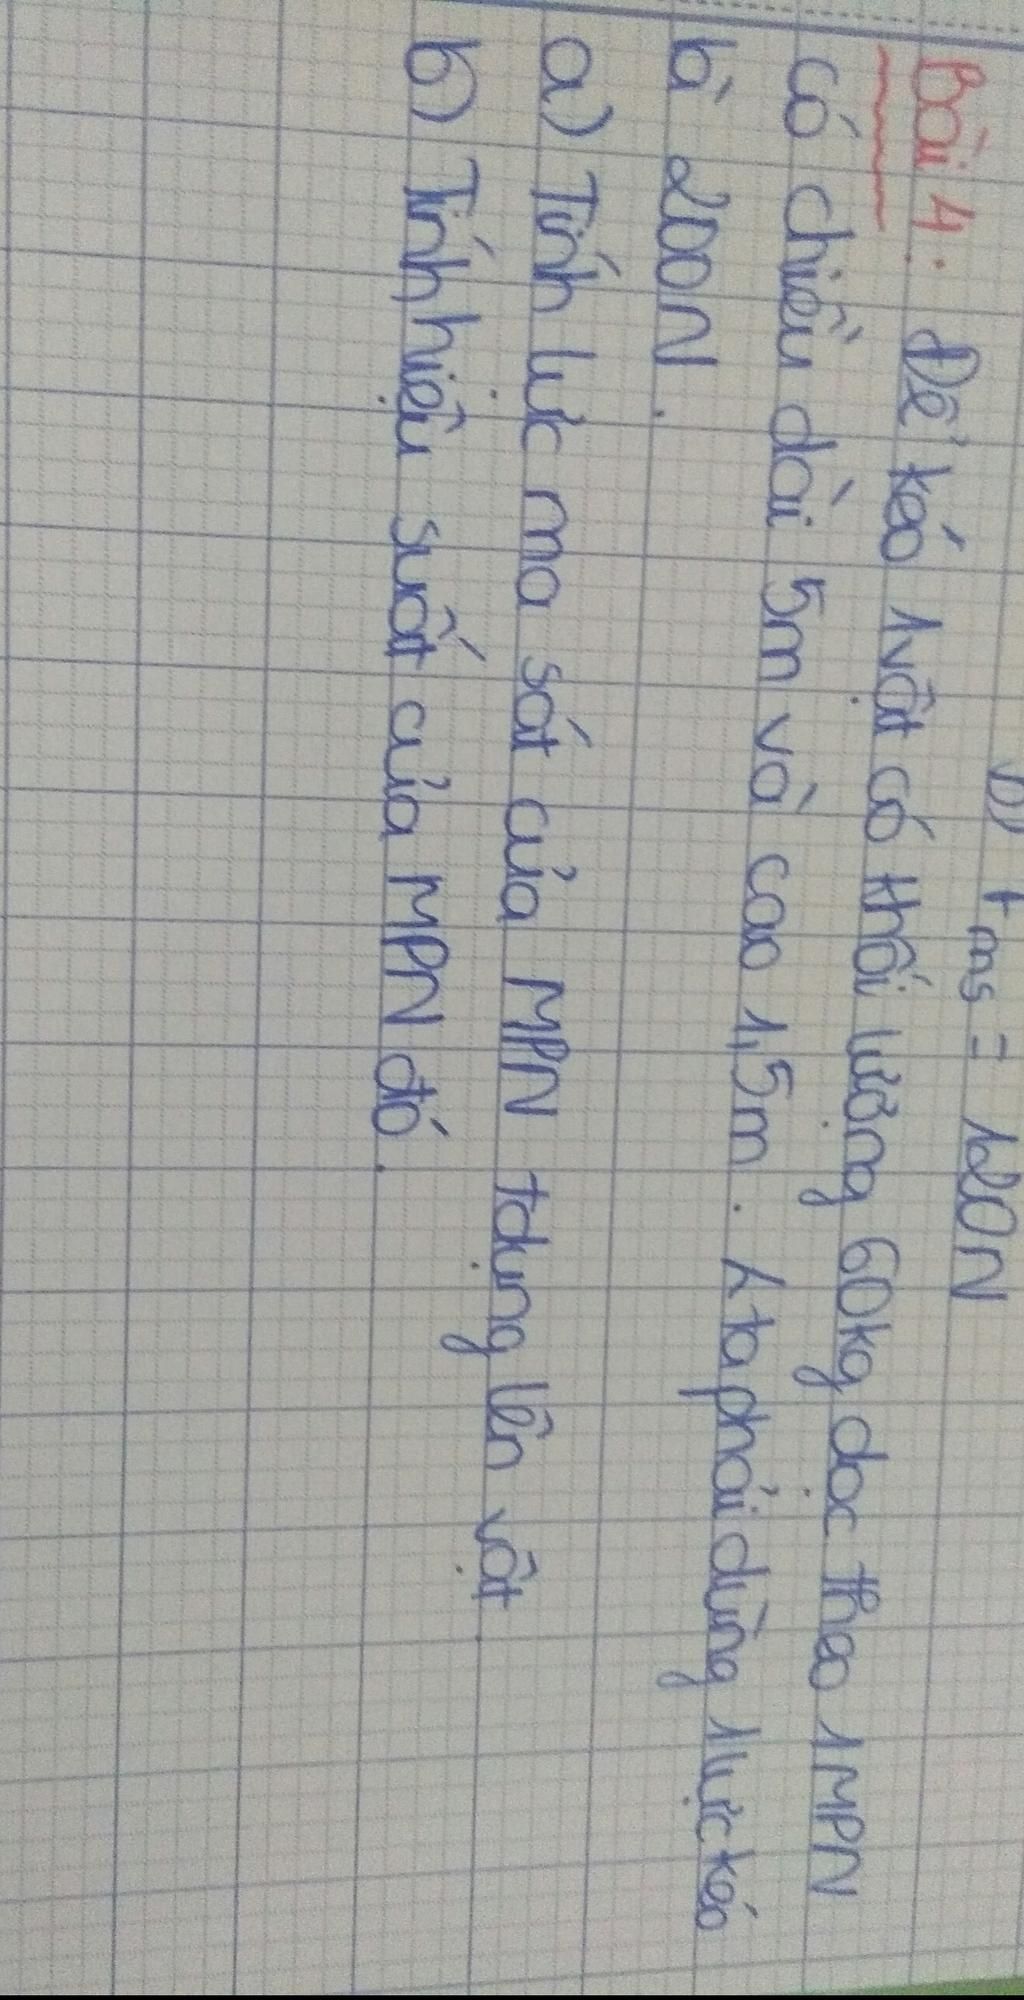 b) Fms = 120N
Bài 4: Để kéo 1 vật có khối lượng 60kg dọc theo 1 MPN
có chiều dài 5m và cao 1,5m. Ata phải dùng 1 lực kéo
là 200N.
a) Tính lực ma sát của MPN tdụng lên vật
b) Tính hiệu suất của MPN đó.